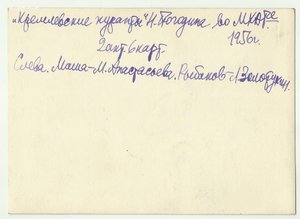 „Кремлевские куранты" Н. Погодина во МХАТе
1956г.
2 акт 6 карт.
Слева. Маша - М. Анастасьева. Рыбаков - Л. Золотухин.